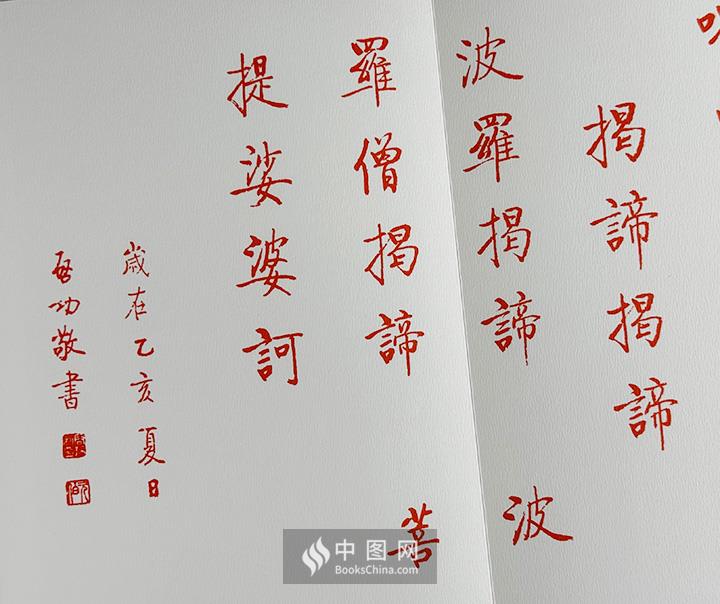 揭諦揭諦
波羅揭諦波
羅僧揭諦菩
提娑婆訶
歲在乙亥夏日
启功敬書
中图网
BooksChina.com